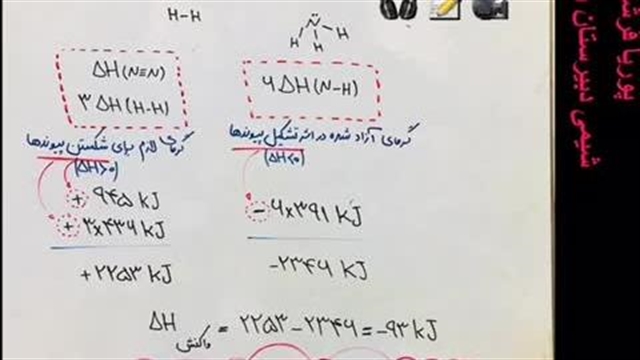 H-H
N
H H H
ΔH(N≡N)
۳ΔH(H-H)
۶ΔH(N-H)
گرمای لازم برای شکستن پیوندها
(ΔH>0)
گرمای آزاد شده در اثر تشکیل پیوندها
(ΔH<0)
+ ۹۴۵ kJ
+ ۳×۴۳۶ kJ
- ۶×۳۹۱ kJ
+۲۲۵۳ kJ
-۲۳۴۶ kJ
ΔH واکنش = ۲۲۵۳ - ۲۳۴۶ = -۹۳ kJ
پوریا
شیمی دبیرستان